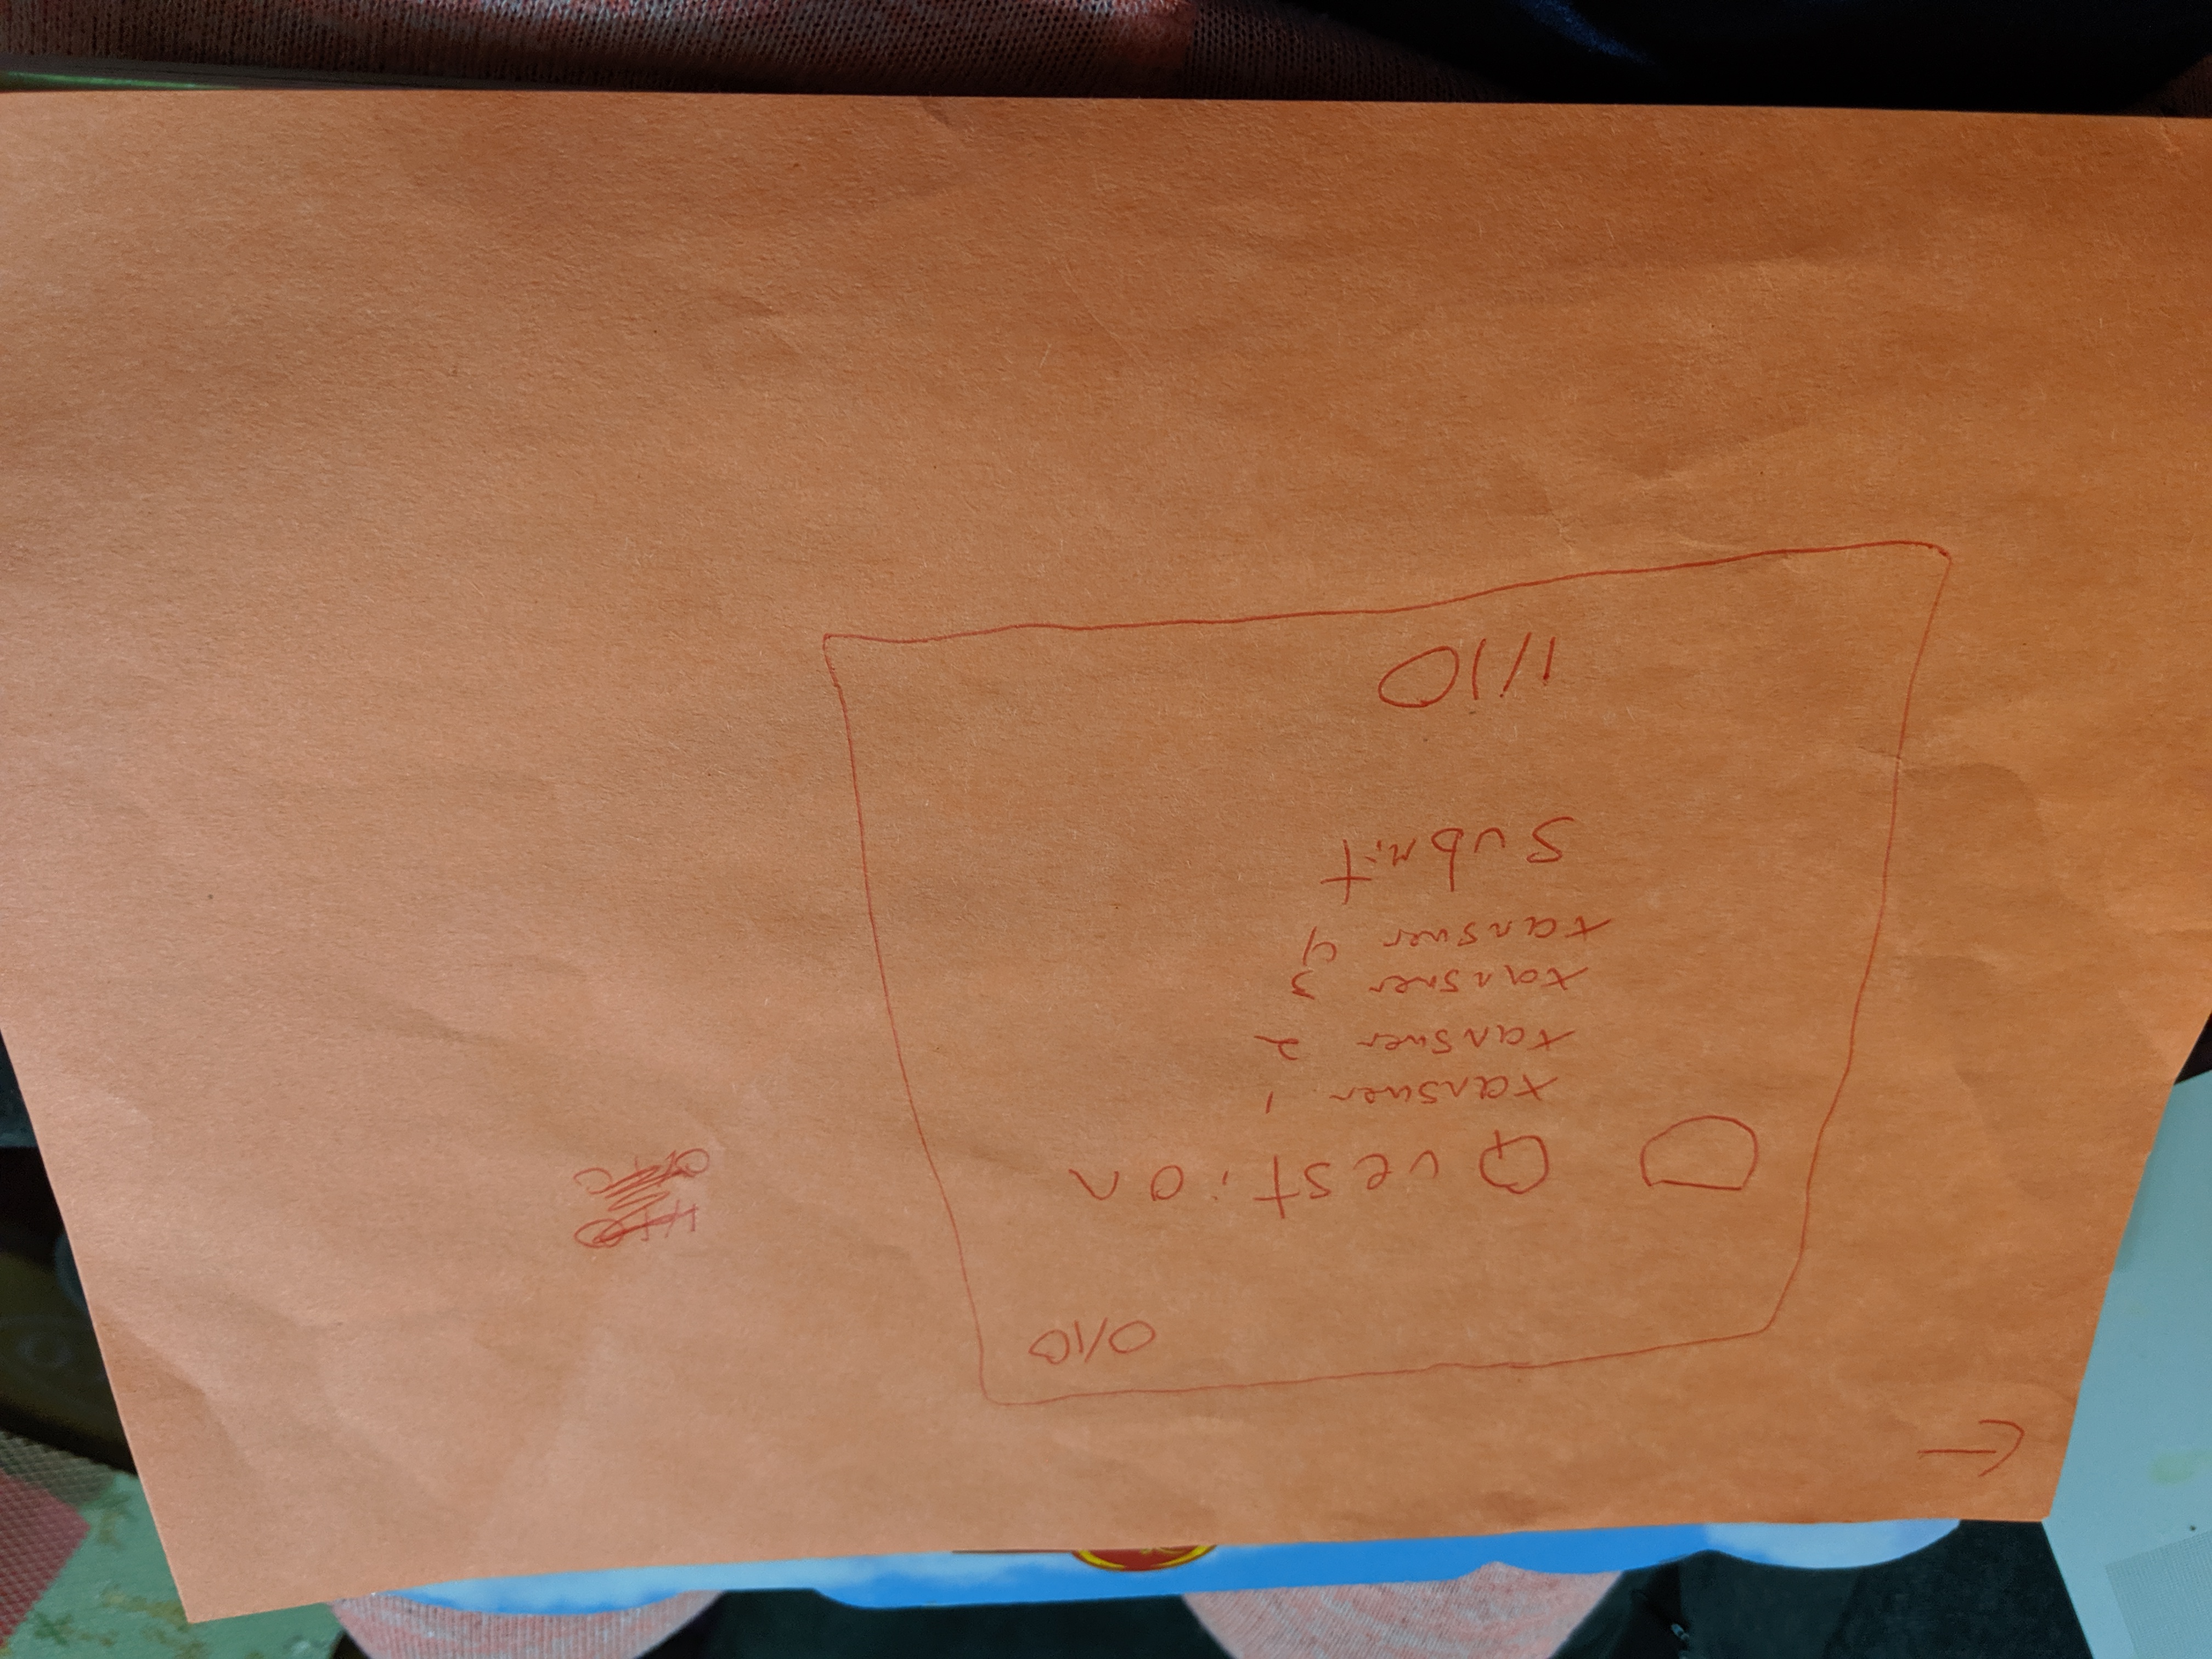 0/10
Question
x answer 1
x answer 2
x answer 3
x answer 4
submit
1/10